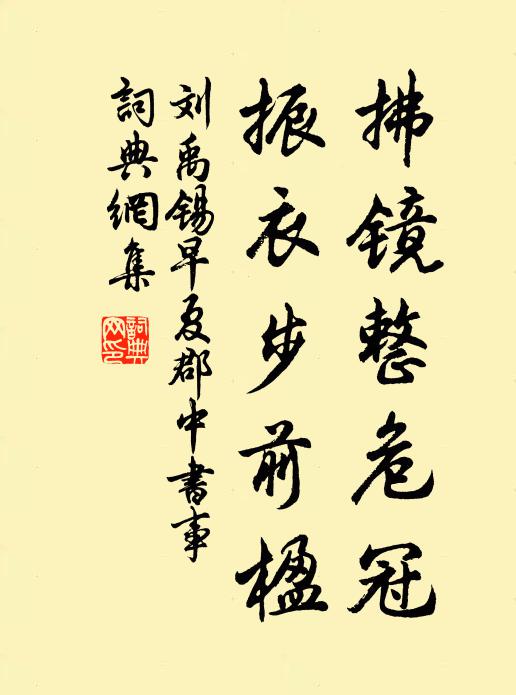 拂镜整危冠
振衣步前楹
刘禹锡早夏郡中书事
詞典網集
詞典
网印